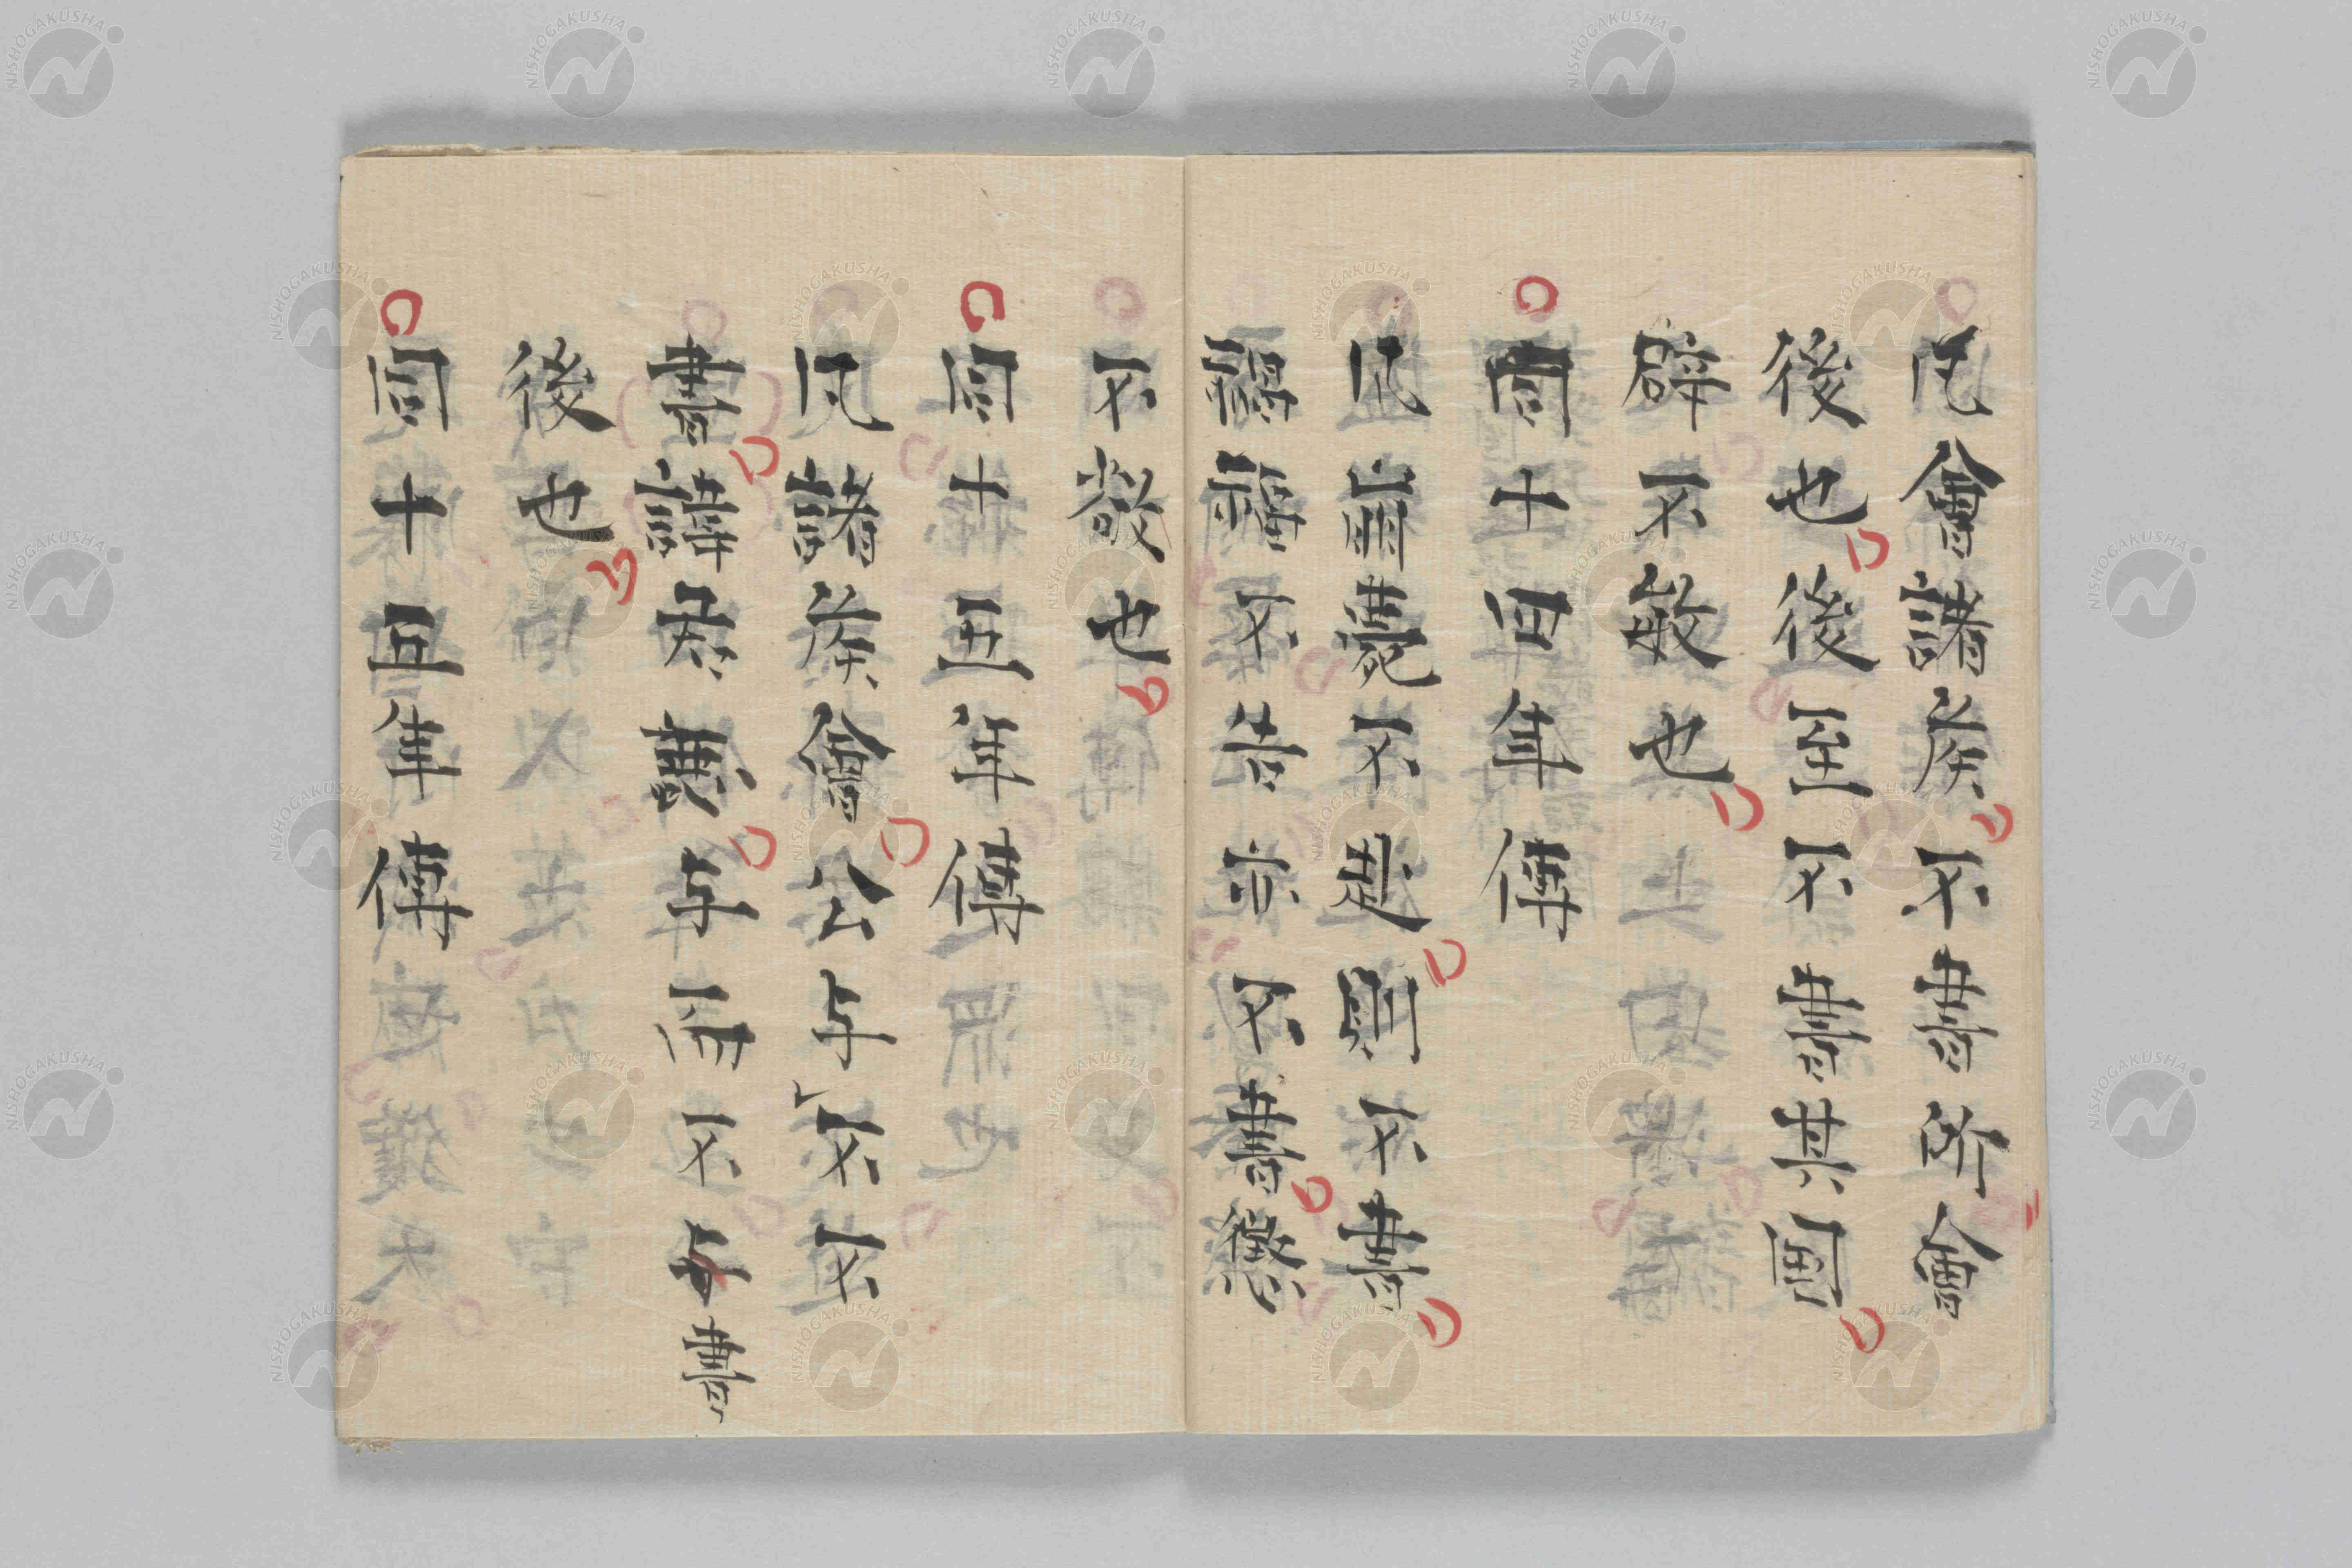 凡會諸侯不書所會
後也後至不書其國
辟不敏也
同十四年傳
凡崩薨不赴則不書
禍福不告亦不書懲
不敬也
同十五年傳
凡諸侯會公与不不
書諱君惡与而不与書
後也
同十五年傳
NISHOGAKUSHA